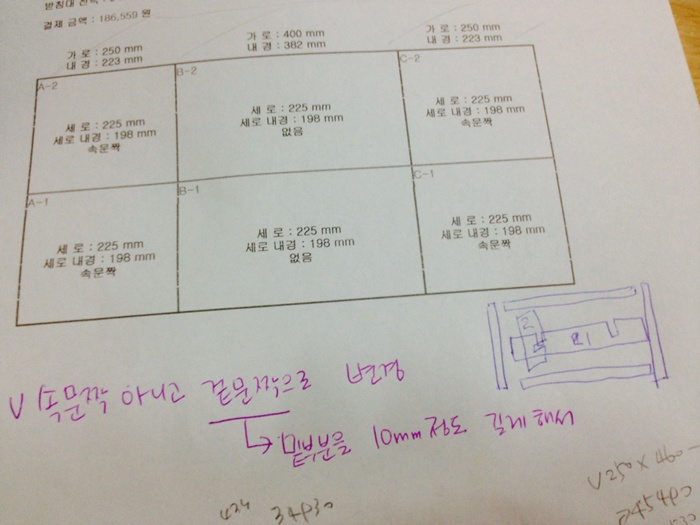 결제 금액 : 186,559 원
가 로 : 250 mm
내 경 : 223 mm
가 로 : 400 mm
내 경 : 382 mm
가 로 : 250 mm
내 경 : 223 mm
A-2
세 로 : 225 mm
세로 내경 : 198 mm
속문짝
B-2
세 로 : 225 mm
세로 내경 : 198 mm
없음
C-2
세 로 : 225 mm
세로 내경 : 198 mm
속문짝
A-1
세 로 : 225 mm
세로 내경 : 198 mm
속문짝
B-1
세 로 : 225 mm
세로 내경 : 198 mm
없음
C-1
세 로 : 225 mm
세로 내경 : 198 mm
속문짝
V 속문짝 아니고 겉문짝으로 변경
밑부분을 10mm 정도 길게 해서
2
V 250 x 460
34930
245490